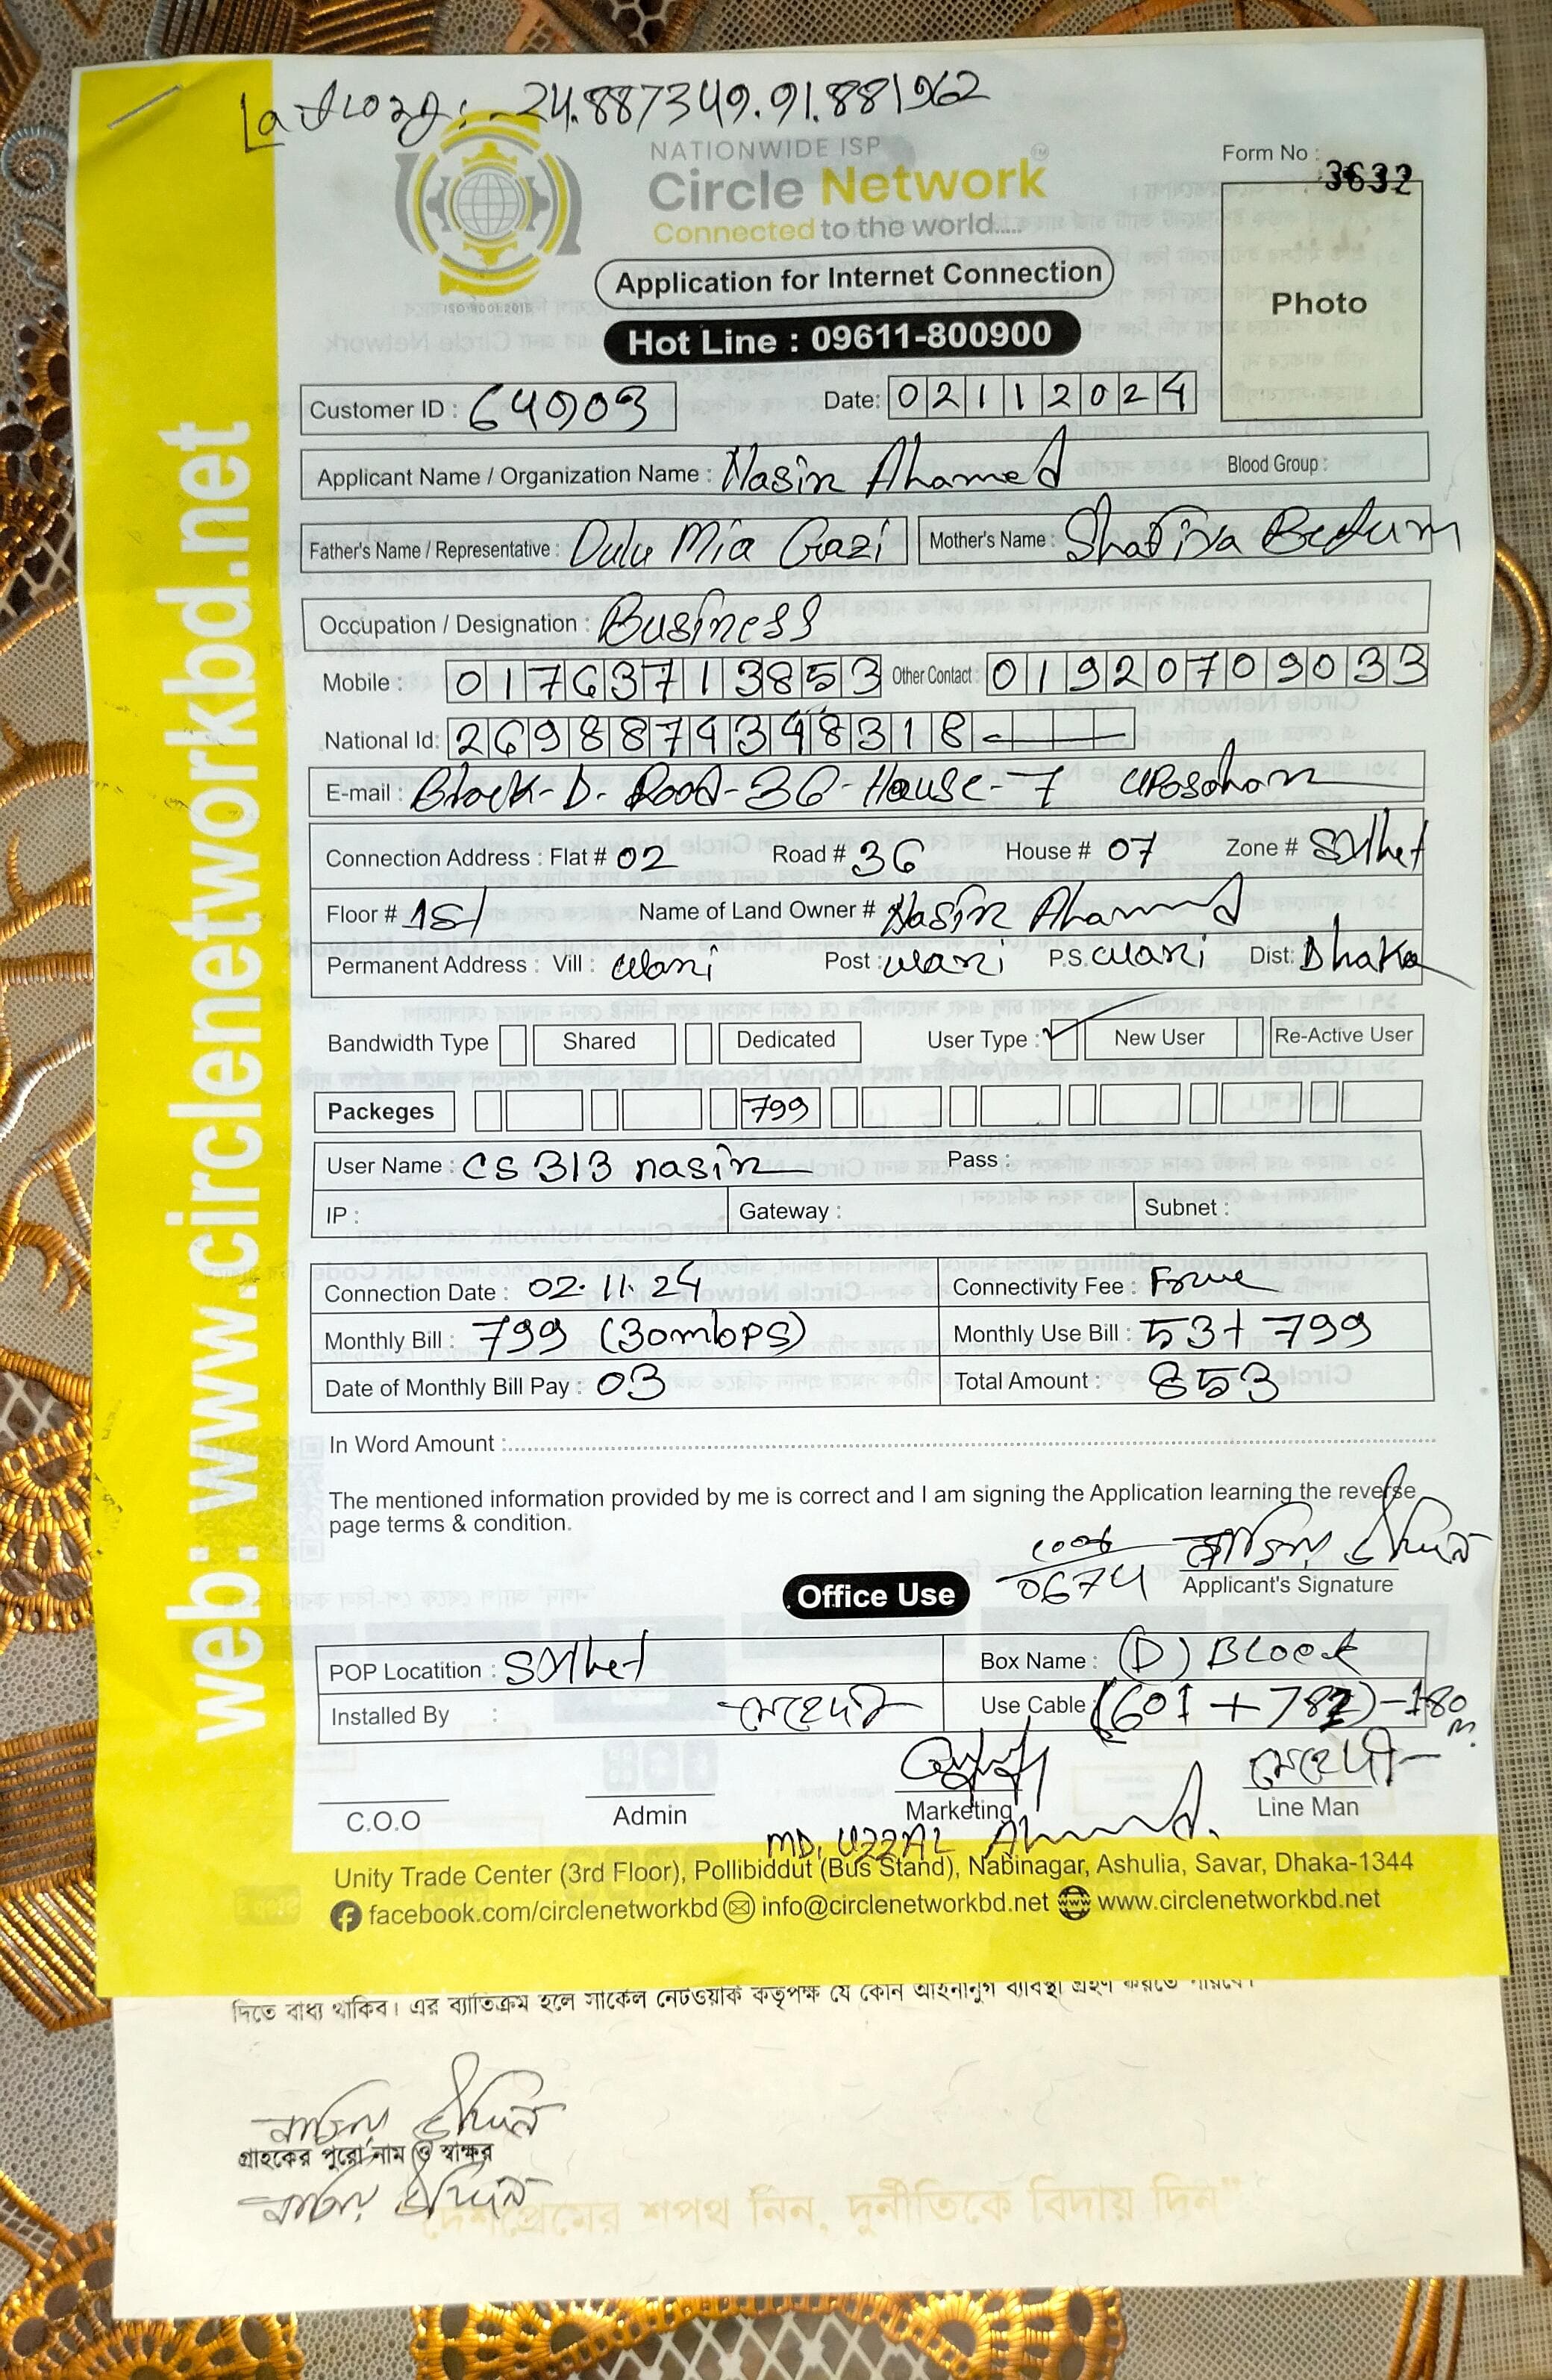 Lat long: -24.887349.91.881962
NATIONWIDE ISP
Circle Network™
Connected to the world.....
Form No : 3632
Photo
Application for Internet Connection
Hot Line : 09611-800900
Customer ID : 64903
Date: 02112024
Applicant Name / Organization Name : Nasir Ahamed Blood Group :
Father's Name / Representative : Dulu Mia Gazi Mother's Name :
Occupation / Designation : Business
Mobile : 01763713853 Other Contact : 01920709033
National Id: 2698874348318
E-mail : Block-D- Road-36-House-7 uposohor
Connection Address : Flat # 02 Road # 36 House # 07 Zone # Sylhet
Floor # 1st Name of Land Owner # Nasir Ahamed
Permanent Address : Vill : wari Post : wari P.S. wari Dist: Dhaka
Bandwidth Type Shared Dedicated User Type : New User Re-Active User
Packeges 799
User Name : CS313 nasir Pass :
IP : Gateway : Subnet :
Connection Date : 02.11.24 Connectivity Fee : Free
Monthly Bill : 799 (30mbps) Monthly Use Bill : 53+799
Date of Monthly Bill Pay : 03 Total Amount : 853
In Word Amount :
The mentioned information provided by me is correct and I am signing the Application learning the reverse
page terms & condition.
0674
Applicant's Signature
Office Use
POP Locatition : Sylhet Box Name : (D) Block
Installed By : মেহেদী Use Cable : (601 + 782)-180 m.
মেহেদী
C.O.O Admin Marketing Line Man
MD. UZZAL Ahmed.
Unity Trade Center (3rd Floor), Pollibiddut (Bus Stand), Nabinagar, Ashulia, Savar, Dhaka-1344
facebook.com/circlenetworkbd info@circlenetworkbd.net www.circlenetworkbd.net
web: www.circlenetworkbd.net
দিতে বাধ্য থাকিব। এর ব্যাতিক্রম হলে সার্কেল নেটওয়ার্ক কতৃপক্ষ যে কোন আইনানুগ ব্যবিস্থা গ্রহণ করতে পারবে।
নাসির উদ্দিন
গ্রাহকের পুরো নাম ও স্বাক্ষর
নাসির উদ্দিন
দেশপ্রেমের শপথ নিন, দুর্নীতিকে বিদায় দিন"